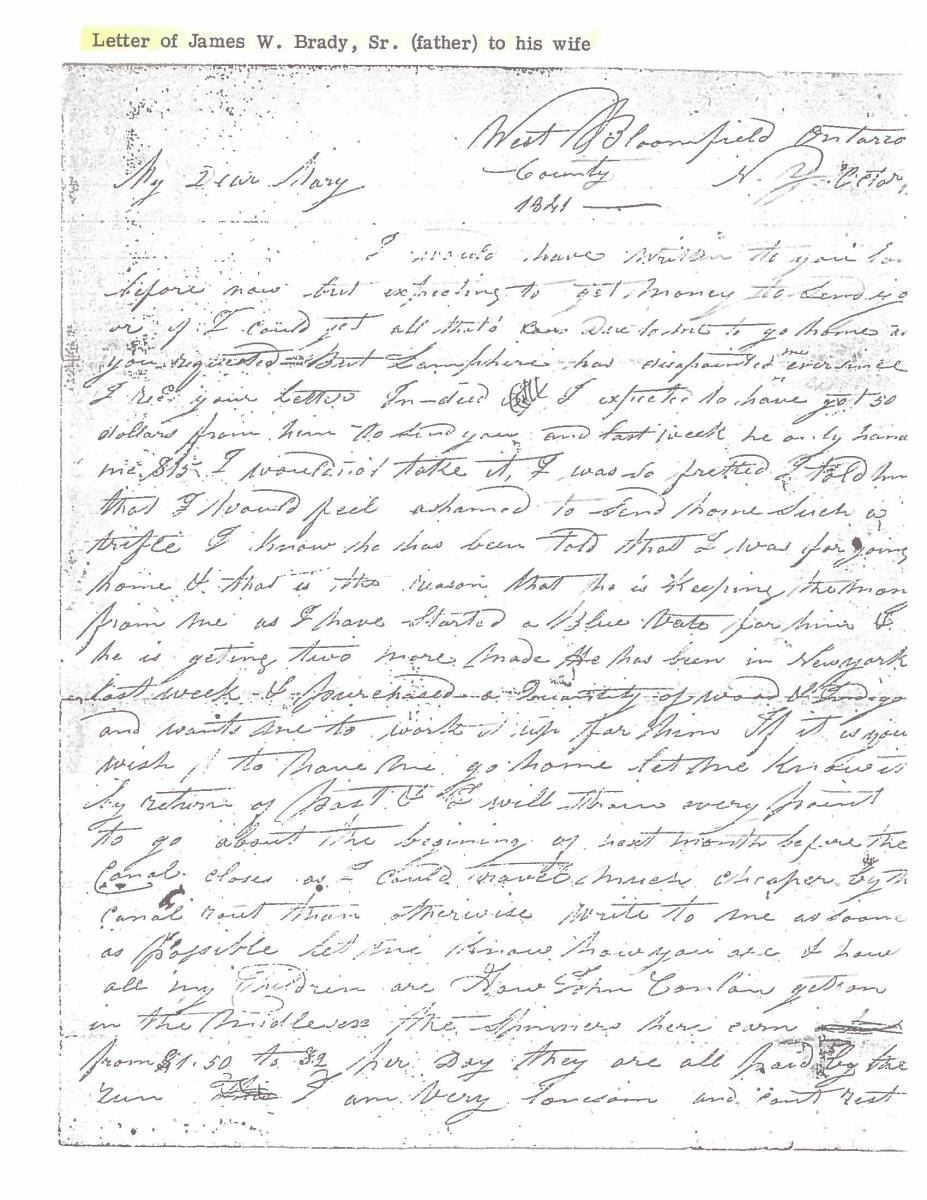 Letter of James W. Brady, Sr. (father) to his wife
West Bloomfield Ontario
My Dear Mary County N. Y. Octor
1841
I would have written to you
before now but expecting to get money to send yo
or if I could get all that's Due to me to go home as
you requested But Lamphire has disapointed me ever since
I recd your Letter In-deed I expected to have got 50
dollars from him to send you and last week he only hand
me $15 I would not take it, I was so fretted I told him
that I Would feel ashamed to send home such a
trifle I know he has been told that I was for going
home & that is the reason that he is Keeping the mon
from me as I have Started a Blue Vate for him &
he is geting two more made He has been in Newyork
last week & purchased a Quantity of woad & Indigo
and wants me to work it up for him If it is you
wish to have me go home let me Know it
by return of Post & I will
to go about the begining of next month before the
Canal closes as I could travel much cheaper by th
canal rout than otherwise write to me as soon
as possible let me Know how you are & how
all my Children are How John Conlan get on
in the Midlesex the Spinners here earn
from $1.50 to $2 per Day they are all paid by the
run I am Very lonesom and cant rest